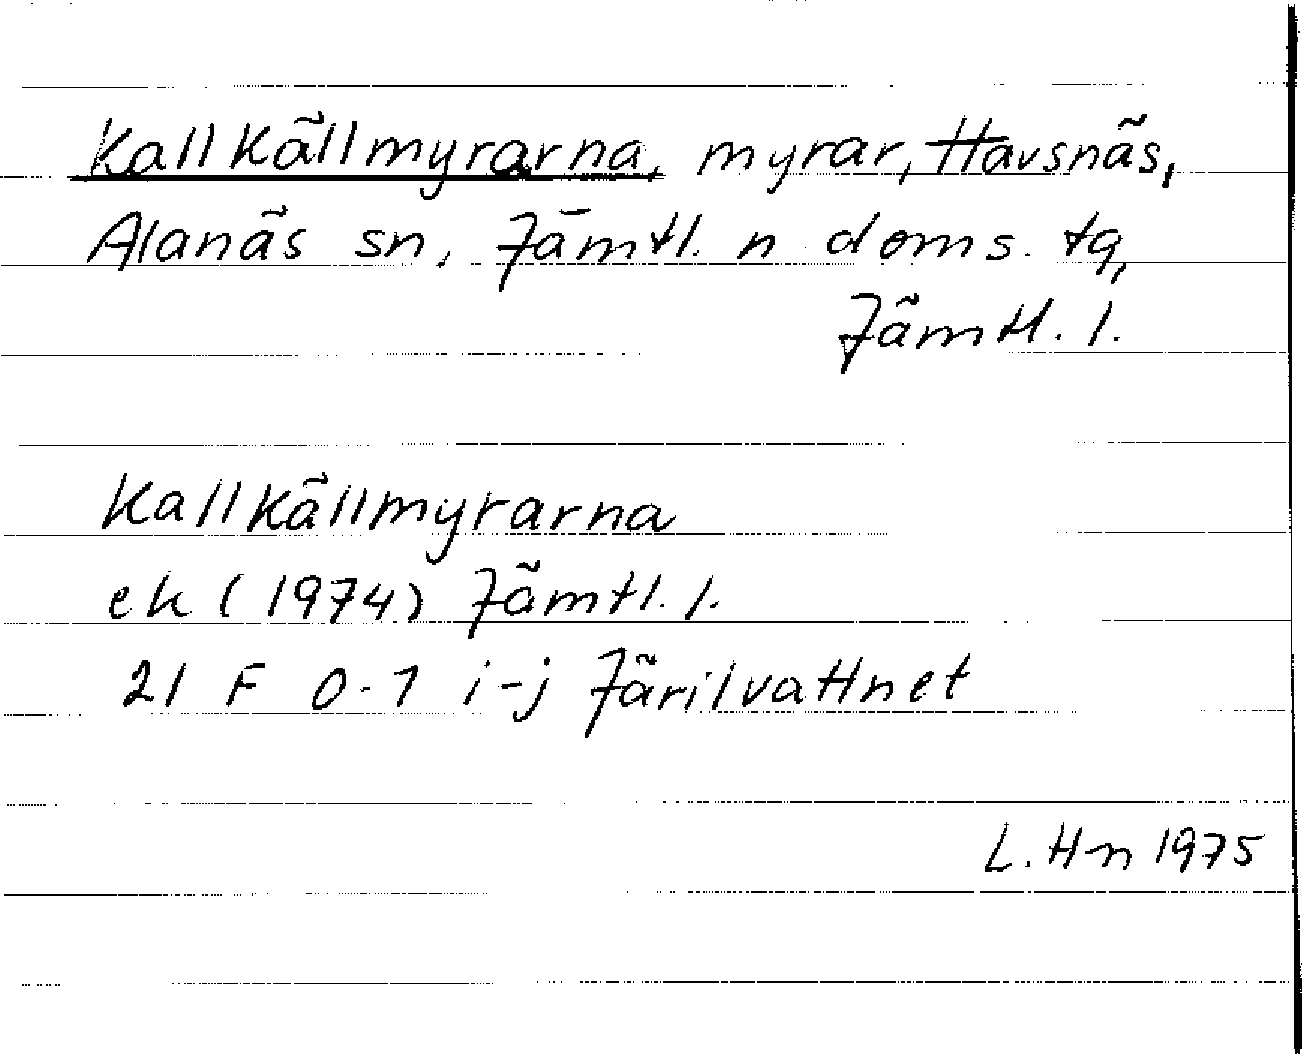 Kallkällmyrarna, myrar, Havsnäs,
Alanäs sn, Jämtl. n doms. tg,
Jämtl. l.
Kallkällmyrarna
ek (1974) Jämtl. l.
21 F 0-1 i-j Järilvattnet
L. Hn 1975